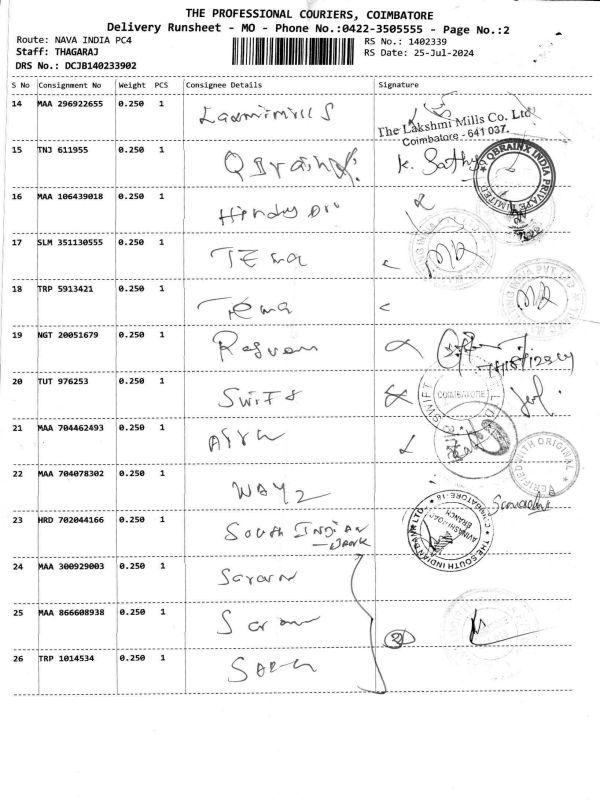 THE PROFESSIONAL COURIERS, COIMBATORE
Delivery Runsheet - MO - Phone No.:0422-3505555 - Page No.:2
Route: NAVA INDIA PC4
RS No.: 1402339
Staff: THAGARAJ
RS Date: 25-Jul-2024
DRS No.: DCJB140233902
S No Consignment No Weight PCS Consignee Details Signature
14 MAA 296922655 0.250 1 Laxmimills
The Lakshmi Mills Co. Ltd
Coimbatore - 641 037.
15 TNJ 611955 0.250 1 K. Sathya
QBRAINX INDIA PRIVATE LIMITED
16 MAA 106439018 0.250 1
17 SLM 351130555 0.250 1 TEMA
18 TRP 5913421 0.250 1 Tema
19 NGT 20051679 0.250 1
20 TUT 976253 0.250 1 Swift
SWIFT
COIMBATORE
21 MAA 704462493 0.250 1
VERIFIED WITH ORIGINAL
22 MAA 704078302 0.250 1 WAY2
23 HRD 702044166 0.250 1 South Indian
- Bank
THE SOUTH INDIAN BANK LTD.
COIMBATORE-18
AVINASHI ROAD
BRANCH
24 MAA 300929003 0.250 1
25 MAA 866608938 0.250 1
2
26 TRP 1014534 0.250 1